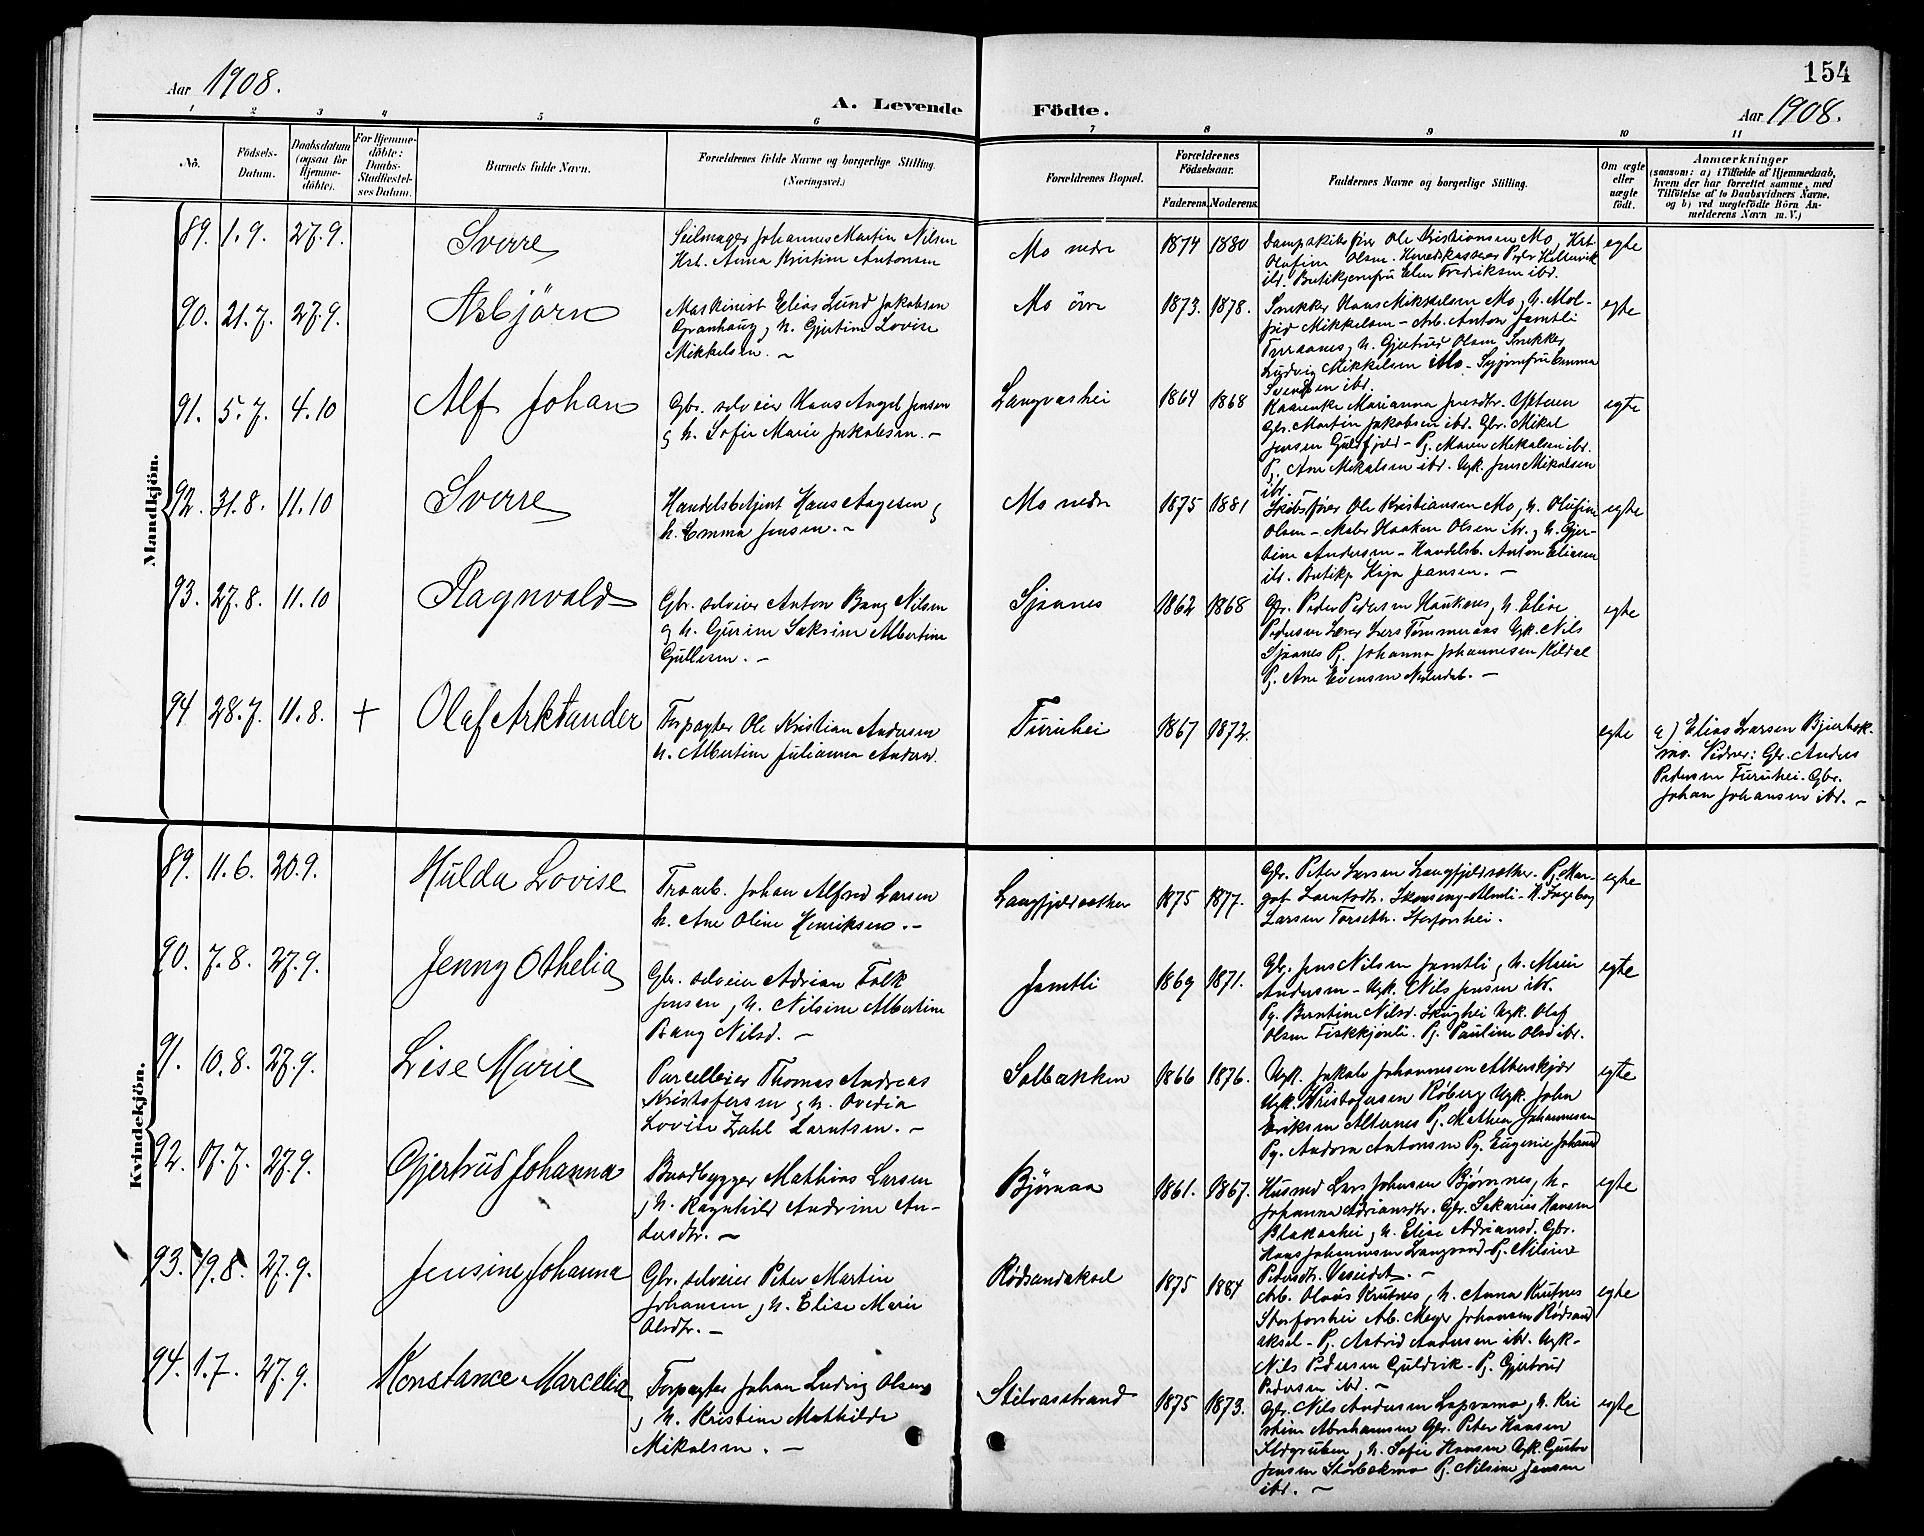 154
Aar 1908.
A. Levende Födte.
Aar 1908.
1 2 3 4 5 6 7 8 9 10 11
No.
Födsels-Datum.
Daabsdatum (ogsaa for Hjemmedöbte).
For Hjemmedöbte: Daabs-Stadfæstelses Datum.
Barnets fulde Navn.
Forældrenes fulde Navne og borgerlige Stilling.
(Næringsvei.)
Forældrenes Bopæl.
Forældrenes Födselsaar.
Faderens. Moderens.
Faddernes Navne og borgerlige Stilling.
Om ægte eller uægte födt.
Anmærkninger
(saasom: a) i Tilfælde af Hjemmedaab,
hvem der har forrettet samme, med
Tilföielse af to Daabsvidners Navne,
og b) ved uægtefödte Börn An-
melderens Navn m. V.)
Mandkjön.
89. 1.9. 27.9. Sverre
Seilmager Johannes Martin Nilsen
Hst. Anna Kristine Antonsen
Mo nedre 1874 1880
Dampskibsfører Ole Kristiansen Mo, Hst.
Olufine Olsen. Herredskasserer Peder
ibr. Butikjomfru Elen Fredriksen ibr.
egte
90. 21.7. 27.9. Asbjörn
Maskinist Elias Lund Jakobsen
Granhaug, h. Gjertine Lovise
Mikkelsen. -
Mo övre 1873. 1878.
Snekker Hans Mikkelsen Mo, h. Mol-
frid Mikkelsen - Arb. Anton Jamtli
h. Gjertrud Olsen Snekker
Ludvig Mikkelsen Mo - Syjomfru Emma
Svendsen ibr.
egte
91. 5.7. 4.10 Alf Johan
Gbr. selveier Hans Angel Jensen
og h. Sofie Marie Jakobsen. -
Langvashei 1864 1868
Marianna Jensdtr.
Gbr. Martin Jakobsen ibr. Gbr. Mikal
Jensen Guldfjeld - Pj. Maren Mikalsen ibr.
Pj. Ane Mikalsen ibr. Ugk. Jens Mikalsen
ibr.
egte
92. 31.8. 11.10 Sverre
Handelsbetjent Hans Aagesen og
h. Emma Jensen. -
Mo nedre 1875 1881
Skibsfører Ole Kristiansen Mo, h. Olufine
Olsen - Maler Haakon Olsen ibr. og h. Gjer-
tine Andersen - Handelsb. Anton Eliasen
ibr. Butikp. Kaja Jansen. -
egte
93. 27.8. 11.10 Ragnvald
Gbr. selveier Anton Bang Nilsen
og h. Gurine Saksine Albertine
Gullesen. -
Sjaanes 1862 1868
Gbr. Peder Pedersen Haukenes, h. Elise
Pedersen Lærer Lars Tømmeraas Ugk. Nils
Sjaanes Pj. Johanna Johannesen Kildal
Pj. Ane Evensen -
egte
94 28.7. 11.8. + Olaf Arktander
Forpagter Ole Kristian Andersen
h. Albertine Julianna Andersd.
Furuhei 1867 1872.
egte
a) Elias Larsen Bjerbæk-
mo. Vidner: Gbr. Anders
Pedersen Furuhei. Gbr.
Johan Johansen ibr. -
Kvindekjön.
89. 11.6. 20.9. Hulda Lovise
Johan Alfred Larsen
h. Ane Oline Henriksen. -
Langfjeldsæther 1875 1877.
Gbr. Peter Larsen Langfjeldsæther. Pj. Mar-
got Larntsdtr. Skonseng-Almli - K. Ingeborg
Larsen Torseth. Storforshei.
egte
90. 7.8. 27.9. Jenny Othelia
Gbr. selveier Adrian Falk
Jensen, h. Nilsine Albertine
Bang Nilsd. -
Jamtli 1869 1871.
Gbr. Jens Nilsen Jamtli, h. Marie
Andersen - Ugk. Nils Jensen ibr.
Pg. Berntine Nilsd. Skoghei Ugk. Olaf
Olsen Fiskkjønli. Pj. Pauline Olsd ibr.
egte
91. 10.8. 27.9. Lise Marie
Parcelleier Thomas Andreas
Kristofersen og h. Ovedia
Lovise Zahl Larntsen. -
Solbakken 1866 1876.
Ugk. Jakob Johannesen Alterskjær
Ugk. Kristofersen Røberg Ugk. John
Eriksen Altenes Pj. Mathea Johannesen
Pg. Andora Antonsen Pg. Eugenie Johansd
egte
92. 07.7. 27.9. Gjertrud Johanna
Baadbygger Mathias Larsen
, h. Ragnhild Andrine An-
dersdtr. -
Bjørnaa 1861. 1867.
Husmd Lars Johnsen Bjørnnes, h.
Johanna Adriansdtr. Gbr. Sakarias Hansen
Blakaahei, h. Elise Adriansd. Gbr.
Hans Johannesen Langvand Pj. Nilsine
Pedersdtr. Vaseidet. -
egte
93. 19.8. 27.9. Jensine Johanna
Gbr. selveier Peter Martin
Johansen, h. Elise Marie
Olsdtr. -
Rödsandaksel 1875 1884
Arb. Olaus Krutnes, h. Anna Krutnes
Storforshei Arb. Meyer Johansen Rödsand
aksel - Pj. Astrid Andersen ibr. Ugk.
Nils Pedersen Guldvik - Pj. Gjertrud
Pedersen ibr. -
egte
94. 1.7. 27.9. Konstance Marcelia
Forpagter Johan Ludvig Olsen
, h. Kristine Mathilde
Mikalsen. -
Stilvasstrand 1875 1873.
Gbr. Nils Andersen, h. Kri
stine Abrahamsen Gbr. Peter Hansen
Ildgruben, h. Sofie Hansen Ugk. Gustav
Jensen Storbækmo Pj. Nilsine Jensen
ibr. -
egte